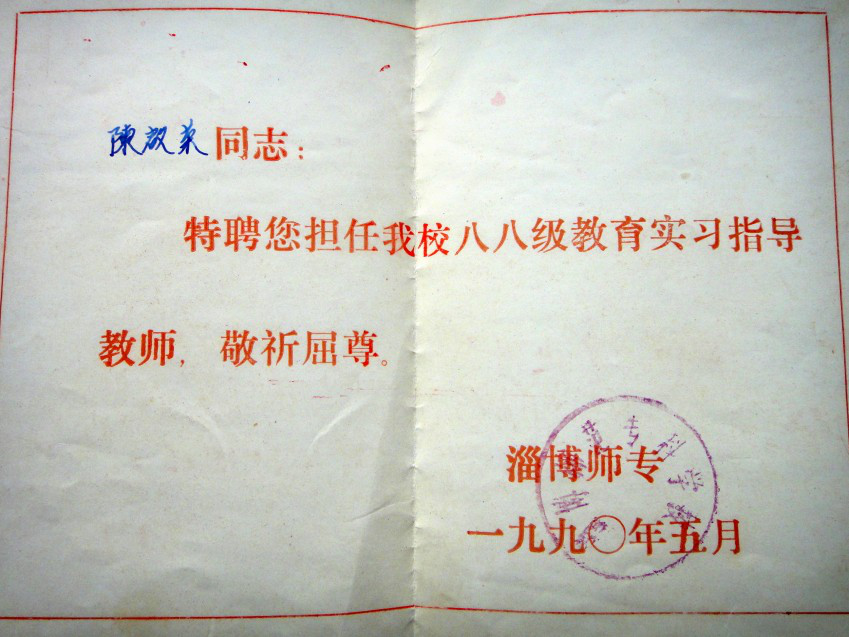 陳啟荣同志：
特聘您担任我校八八级教育实习指导
教师，敬祈屈尊。
淄博师专
一九九〇年五月
师专科学校